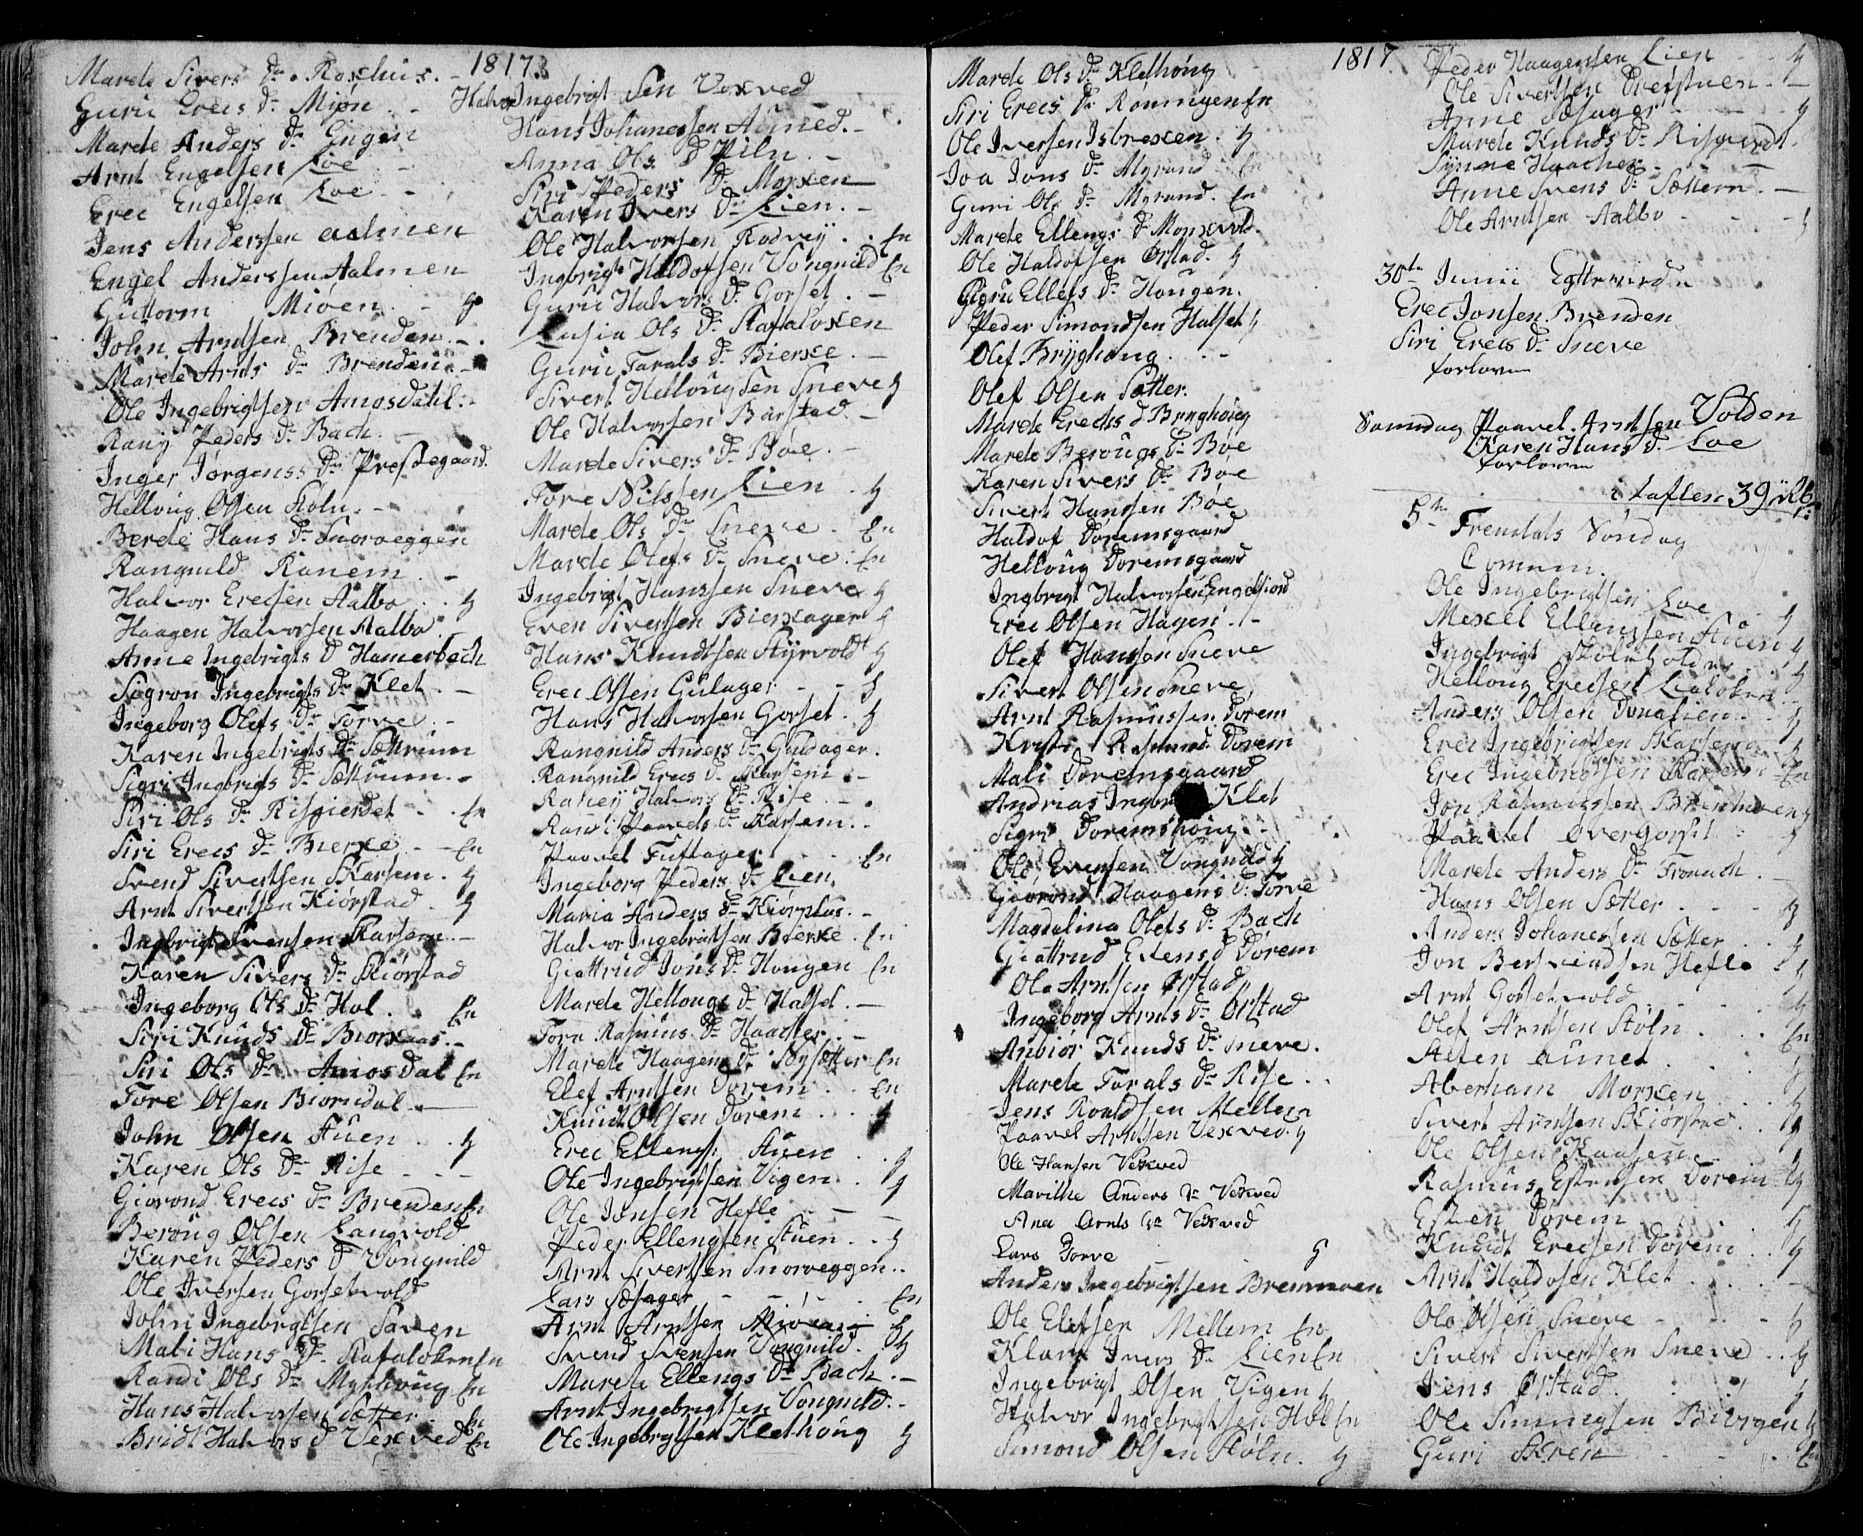 1817.
Marete Sivers Dr. Roxhuis.
Guru Erecs Dr Mjøn
Marete Anders Dr Engen
Arnt Engelsen Loe
Erec Engelsen Loe
Jens Anderssen Aalmen
Engel Anderssen Aalmen
Guttorm Mioen
John Arntsen Brenden
Marete Arnts Dr Brenden
Ole Ingebrigtsen Amosdahl
Rany Peders Dr Bach
Inger Jørgenss Dr Prestegaard
Helloug Olsen Stoln
Berete Hans Dr Snoroeggen
Rangnild Ranem
Halvor Erecsen Aalbo
Haagen Halvorsen Aalbo
Anne Ingebrigts D Hamerbech
Sogron Ingebrigts Dr Klet
Ingeborg Olefs Dr Torve
Karen Ingebrigts Dr Sættrum
Sigri Ingbrigts Dr Sættrum
Siri Ols Dr Risgierdet En
Siri Erecs Dr Bierke En
Svend Sivertsen Karsem
Arnt Sivertsen Kiørstad
Ingbrigt Svensen Karsem
Karen Sivers Dr Skiørstad
Ingeborg Ols Dr Hol En
Siri Knuds Dr Biorkaas
Siri Ols Dr Amosdal En
Tore Olsen Biorndal
John Olsen Stuen
Karen Ols Dr Rise
Giorond Erecs Dr Brenden En
Beroug Olsen Langvold
Karen Peders D Vongnild
Ole Iversen Gorsetvold
John Ingebrigtsen Saven
Mali Hans Dr Stafaloken En
Randi Ols Dr Myrhoug En
Hans Halvorsen Sætter En
Bridt Halvors D Vexved En
Halvor Ingebrigtsen Vexved
Hans Johanessen Aûned
Anna Ols D Piln
Siri Peders D Morken
Karen Ivers Dr Lien
Ole Halvorsen Rodvey En
Ingbrigt Haldorsen Vongnild En
Guru Halvors Dr Gorset
Lusia Ols Dr Stafaloken
Guru Tarals Dr Bierke
Sivert Hellougsen Sneve
Ole Halvorsen Barstad
Marete Sivers Dr Bøe
Tore Nilssen Lien
Marete Ols Dr Sneve En
Marete Olefs Dr Sneve En
Ingebrigt Hanssen Sneve
Even Sivertsen Bierkager
Hans Knudtsen Styrvold
Erec Olsen Gulager
Hans Halvorsen Gorset
Rangnild Anders Dr Guldager
Rangnild Erecs Dr Karsem
Raney Halvors Dr Rise
Randi Paavels Dr Karsem
Paavel Futtager En
Ingeborg Peders Dr Lien
Maria Anders Dr Kiørhus
Halvor Ingebrigtsen Bierke En
Giøttrud Jons Dr Hougen En
Marete Hellougs Dr Halset
Torn Rasmus Dr Haacker
Marete Haagens Dr Nysætter En
Elef Arntsen Dorem En
Knudt Olsen Dorem
Erec Ellengs Stuen
Ole Ingebrigtsen Vigen
Ole Jonsen Hefle
Peder Ellengsen Stuen
Arnt Sivertsen Snoroeggen
Lars Sæsager En
Arnt Arntsen Mioen
Svend Svensen Vongnild
Marete Ellengs Dr Bach
Arnt Ingebrigtsen Vongnild
Ole Ingebrigtsen Klethoug
1817
Marete Ols Dr Klethoug
Siri Erecs Dr Rønningen En
Ole Iversen Isbreken
Joa Jons Dr Myrand En
Guri Ols Dr Myrand En
Marete Ellengs Dr Monsvold
Ole Haldorsen Ørstad
Guru Ellefs Dr Haugen
Peder Simondsen Halset
Olef Bryghoug
Olef Olsen Sætter
Marete Erecks D Brynghoug
Marete Berougs Dr Bøe
Karen Sivers Dr Bøe
Sivert Hanssen Bøe
Haldof Doremsgaard
Helloug Doremsgaard
Ingbrigt Halvorsen Engelsjord
Erec Olsen Hagen
Olef Hanssen Sneve
Sivert Olsen Sneve
Arnt Rasmussen Dorem
Kristi Rasmus Dorem
Mali Doremsgaard
Andrias Klet
Sigri Doremshoug
Ole Evensen Vongnild
Giorond Haagens D Torve
Magdalina Olefs Dr Bach
Giøttrud Evens D Dorem
Ole Arntsen Ørstad
Ingeborg Arnts Dr Ørstad
Anbiør Knuds Dr Sneve
Marete Torals Dr Rise
Jens Roaldsen Mellem
Paavel Arntsen Vexved
Ole Hansen Vexved
Marithe Anders Dr Vexved
Ana Arnts Dr Vexved
Lars Torve
Anders Ingebrigtsen Bremmoen
Ole Elefsen Mellem En
Klara Ivers Dr Lien En
Ingebrigt Olsen Vigen
Halvor Ingebrigtsen Hol En
Simond Olsen Støln
Peder Haagensen Lien
Ole Sivertsen Øverstuen
Anne Sæsager
Marete Knuds Dr Risgierdt
Synne Haacker
Anne Svens Dr Sættern
Ole Arntsen Aalbo
30te Junii
Erec Jonsen Brenden
Siri Erecs Dr Sneve
forlovn
Samdag Paavel Arntsen Volden
Karen Hans Dr Loe
forlovn
i taflen 39
5te
Søndag
Comun.
Ole Ingebrigtsen Loe
Mekel Ellengsen Stuen
Ingebrigt Skoleholder
Helloug Erecsen
Anders Olsen Donalien
Erec Ingebrigtsen Karsem
Erec Ingebrigtsen Karsem En
Jon Rasmussen Bremmoen
Paavel Overgorset
Marete Anders Dr Tronach
Hans Olsen Sætter
Anders Johanessen Sætter
Jon Hefle
Arnt Gorsetvold
Olef Arntsen Støln En
Steen Auned
Aberham Morken
Sivert Arntsen Skiørstad
Ole Olsen Kaasen
Rasmus Estensen Dorem
Esten Dorem
Knudt Erecsen Dorem
Arnt Haldosen Klet
Ole Olsen Sneve
Sivert Sivertsen Sneve
Jens Ørstad
Ole Simmensen Biorgen
Guri Skren En